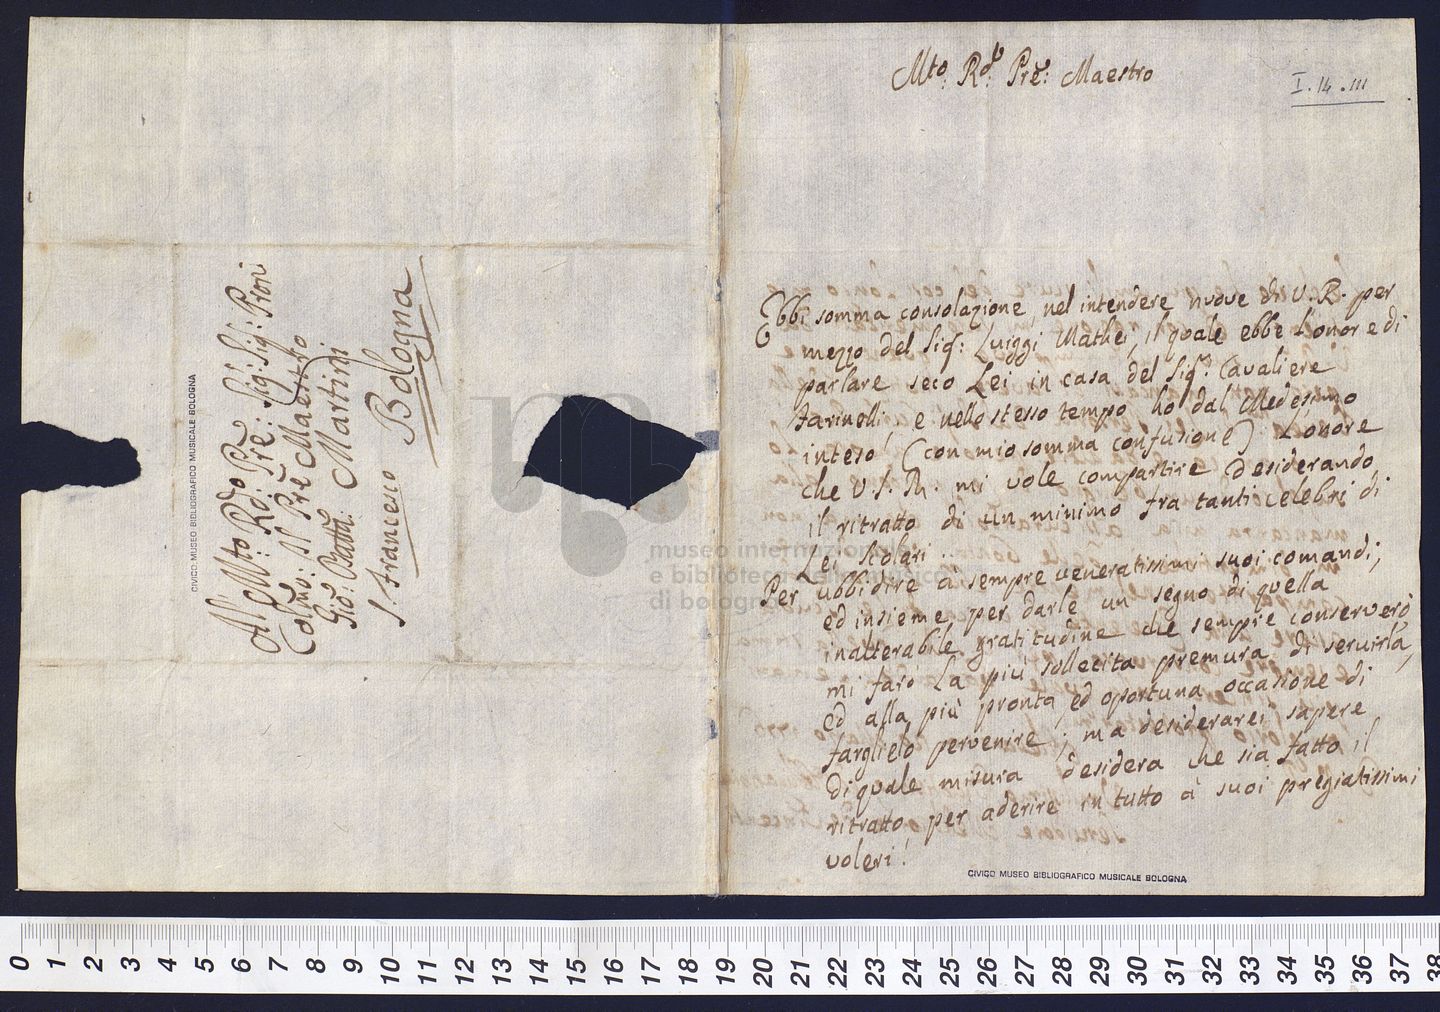 Al Mto: Rdo: Pre: Sig: Sig: Pron:
Colmo: Il Pre Maestro
Gio: Batta: Martini
S. Francesco Bologna
CIVICO MUSEO BIBLIOGRAFICO MUSICALE BOLOGNA
museo internazionale
e biblioteca della musica
di bologna
Mto: Rdo: Pre: Maestro
I. 14. 111
Ebbi somma consolazione nel intendere nuove di V. R. per
mezzo del Sig: Luiggi Mathei, il quale ebbe L'onore di
parlare seco Lei in casa del Sigr. Cavaliere
Farinelli e nello stesso tempo ho dal Medesimo
inteso (con mio somma confusione) L'onore
che V. S. M. mi vole compartire desiderando
il ritratto di un minimo fra tanti celebri di
Lei Scolari.
Per ubbidire à sempre veneratissimi suoi comandi,
ed insieme per darle un segno di quella
inalterabile gratitudine che sempre conserverò,
mi faro La più sollecita premura di servirla,
ed alla più pronta, ed oportuna occasione di
farglielo pervenire; ma desiderarei sapere
di quale misura desidera che sia fatto il
ritratto per aderire in tutto à suoi pregiatissimi
voleri!
CIVICO MUSEO BIBLIOGRAFICO MUSICALE BOLOGNA
0 1 2 3 4 5 6 7 8 9 10 11 12 13 14 15 16 17 18 19 20 21 22 23 24 25 26 27 28 29 30 31 32 33 34 35 36 37 38